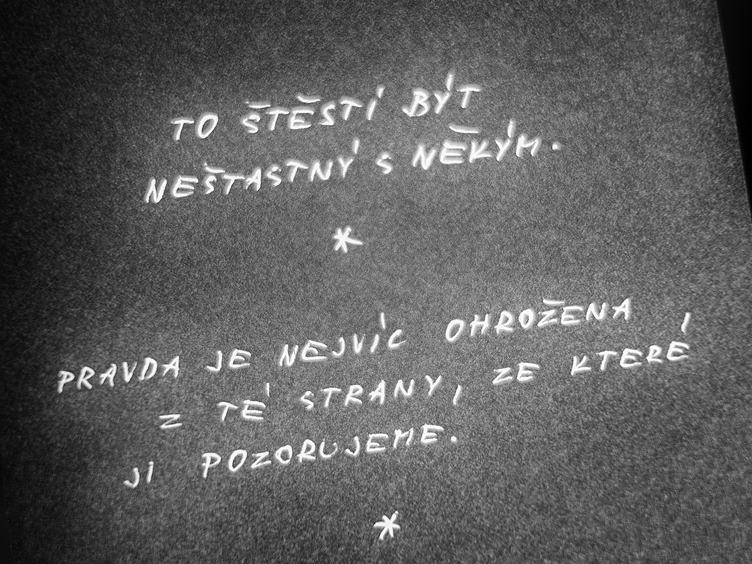 TO ŠTĚSTÍ BÝT
NEŠTASTNÝ S NĚKÝM.
*
PRAVDA JE NEJVÍC OHROŽENA
Z TÉ STRANY, ZE KTERÉ
JI POZORUJEME.
*